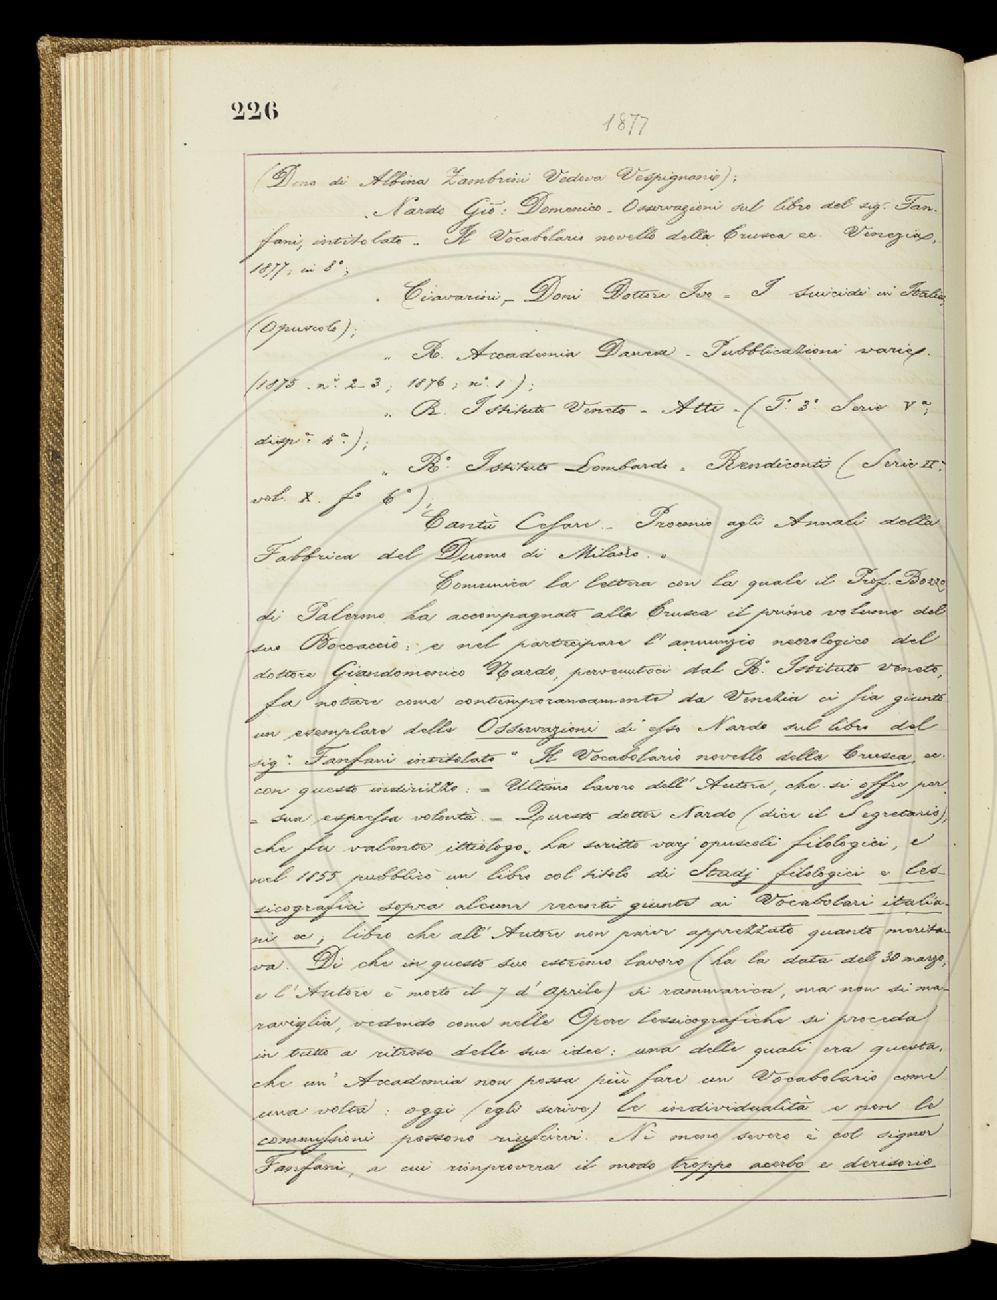 226
1877
(Dono di Albina Zambrini Vedova Vespignani);
" Nardo Gio: Domenico - Osservazioni sul libro del sig.r Fan-
fani, intitolato - Il Vocabolario novello della Crusca ec. Venezia,
1877; in 8°;
" Ciavarini - Doni Dottore Ivo - I suicidi in Italia,
(Opuscolo);
" R. Accademia Danese - Pubblicazioni varie.
(1875. n.i 2-3; 1876; n.° 1);
" R. Istituto Veneto - Atti - (T.° 3° Serie V.a;
disp.a 4.a);
" R.° Istituto Lombardo - Rendiconti (Serie II.a
vol. X. f.° 6°);
Cantù Cesare - Proemio agli Annali della
Fabbrica del Duomo di Milano. "
Comunica la lettera con la quale il Prof. Bozzo
di Palermo ha accompagnato alla Crusca il primo volume del
suo Boccaccio; e nel partecipare l'annunzio necrologico del
dottore Giandomenico Nardo, pervenutoci dal R.° Istituto Veneto,
fa notare come contemporaneamente da Venezia ci sia giunto
un esemplare delle Osservazioni di esso Nardo sul libro del
sig.r Fanfani intitolato " Il Vocabolario novello della Crusca, ec.
con questo indirizzo: = Ultimo lavoro dell'Autore, che si offre per
= sua espressa volontà. = Questo dottor Nardo (dice il Segretario),
che fu valente ittiologo, ha scritto varj opuscoli filologici, e
nel 1855 pubblicò un libro col titolo di Studj filologici e les-
sicografici sopra alcune recenti giunte ai Vocabolari italia-
ni ec; libro che all'Autore non parve apprezzato quanto merita-
va. Di che in questo suo estremo lavoro (ha la data del 30 marzo,
e l'Autore è morto il 7 d'Aprile) si rammarica, ma non si ma-
raviglia, vedendo come nelle Opere lessicografiche si proceda
in tutto a ritroso delle sue idee: una delle quali era questa,
che un'Accademia non possa più fare un Vocabolario come
una volta: oggi (egli scrive) le individualità e non le
commissioni possono riuscirvi. Nè meno severo è col signor
Fanfani, a cui rimprovera il modo troppo acerbo e derisorio